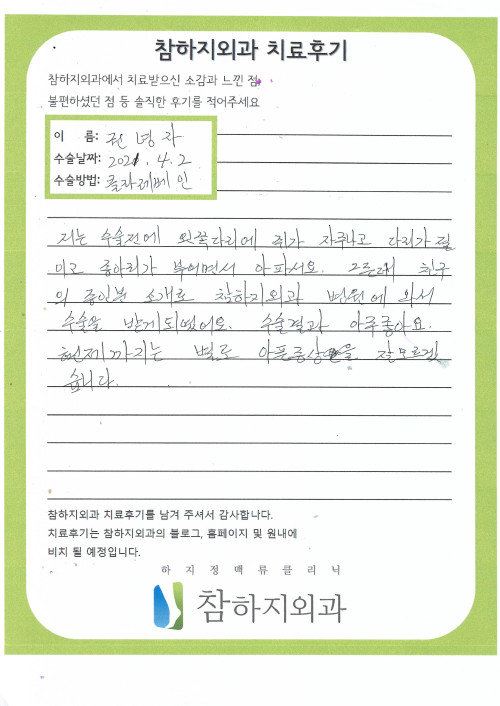 참하지외과 치료후기
참하지외과에서 치료받으신 소감과 느낀 점,
불편하셨던 점 등 솔직한 후기를 적어주세요
이 름: 권녕자
수술날짜: 2021. 4. 2
수술방법: 클라레베인
저는 수술전에 왼쪽다리에 쥐가 자주나고 다리가 절
이고 종아리가 부어면서 아파서요. 그른데 친구
의 중인분 소개로 착하지외과 병원에 와서
수술을 받게되었어요. 수술결과 아주좋아요.
현제까지는 별로 아픈증상을 잘모르겠
습니다.
참하지외과 치료후기를 남겨 주셔서 감사합니다.
치료후기는 참하지외과의 블로그, 홈페이지 및 원내에
비치 될 예정입니다.
하지정맥류클리닉
참하지외과